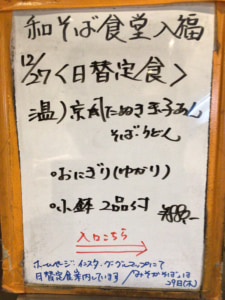 和そば食堂入福
12/27<日替定食>
温)京風たぬき玉子あん
そば・うどん
・おにぎり(ゆかり)
・小鉢 2品付
入口こちら
ホームページ・インスタ・グーグルマップにて
日替定食案内しています
みそかそばは
29日(木)